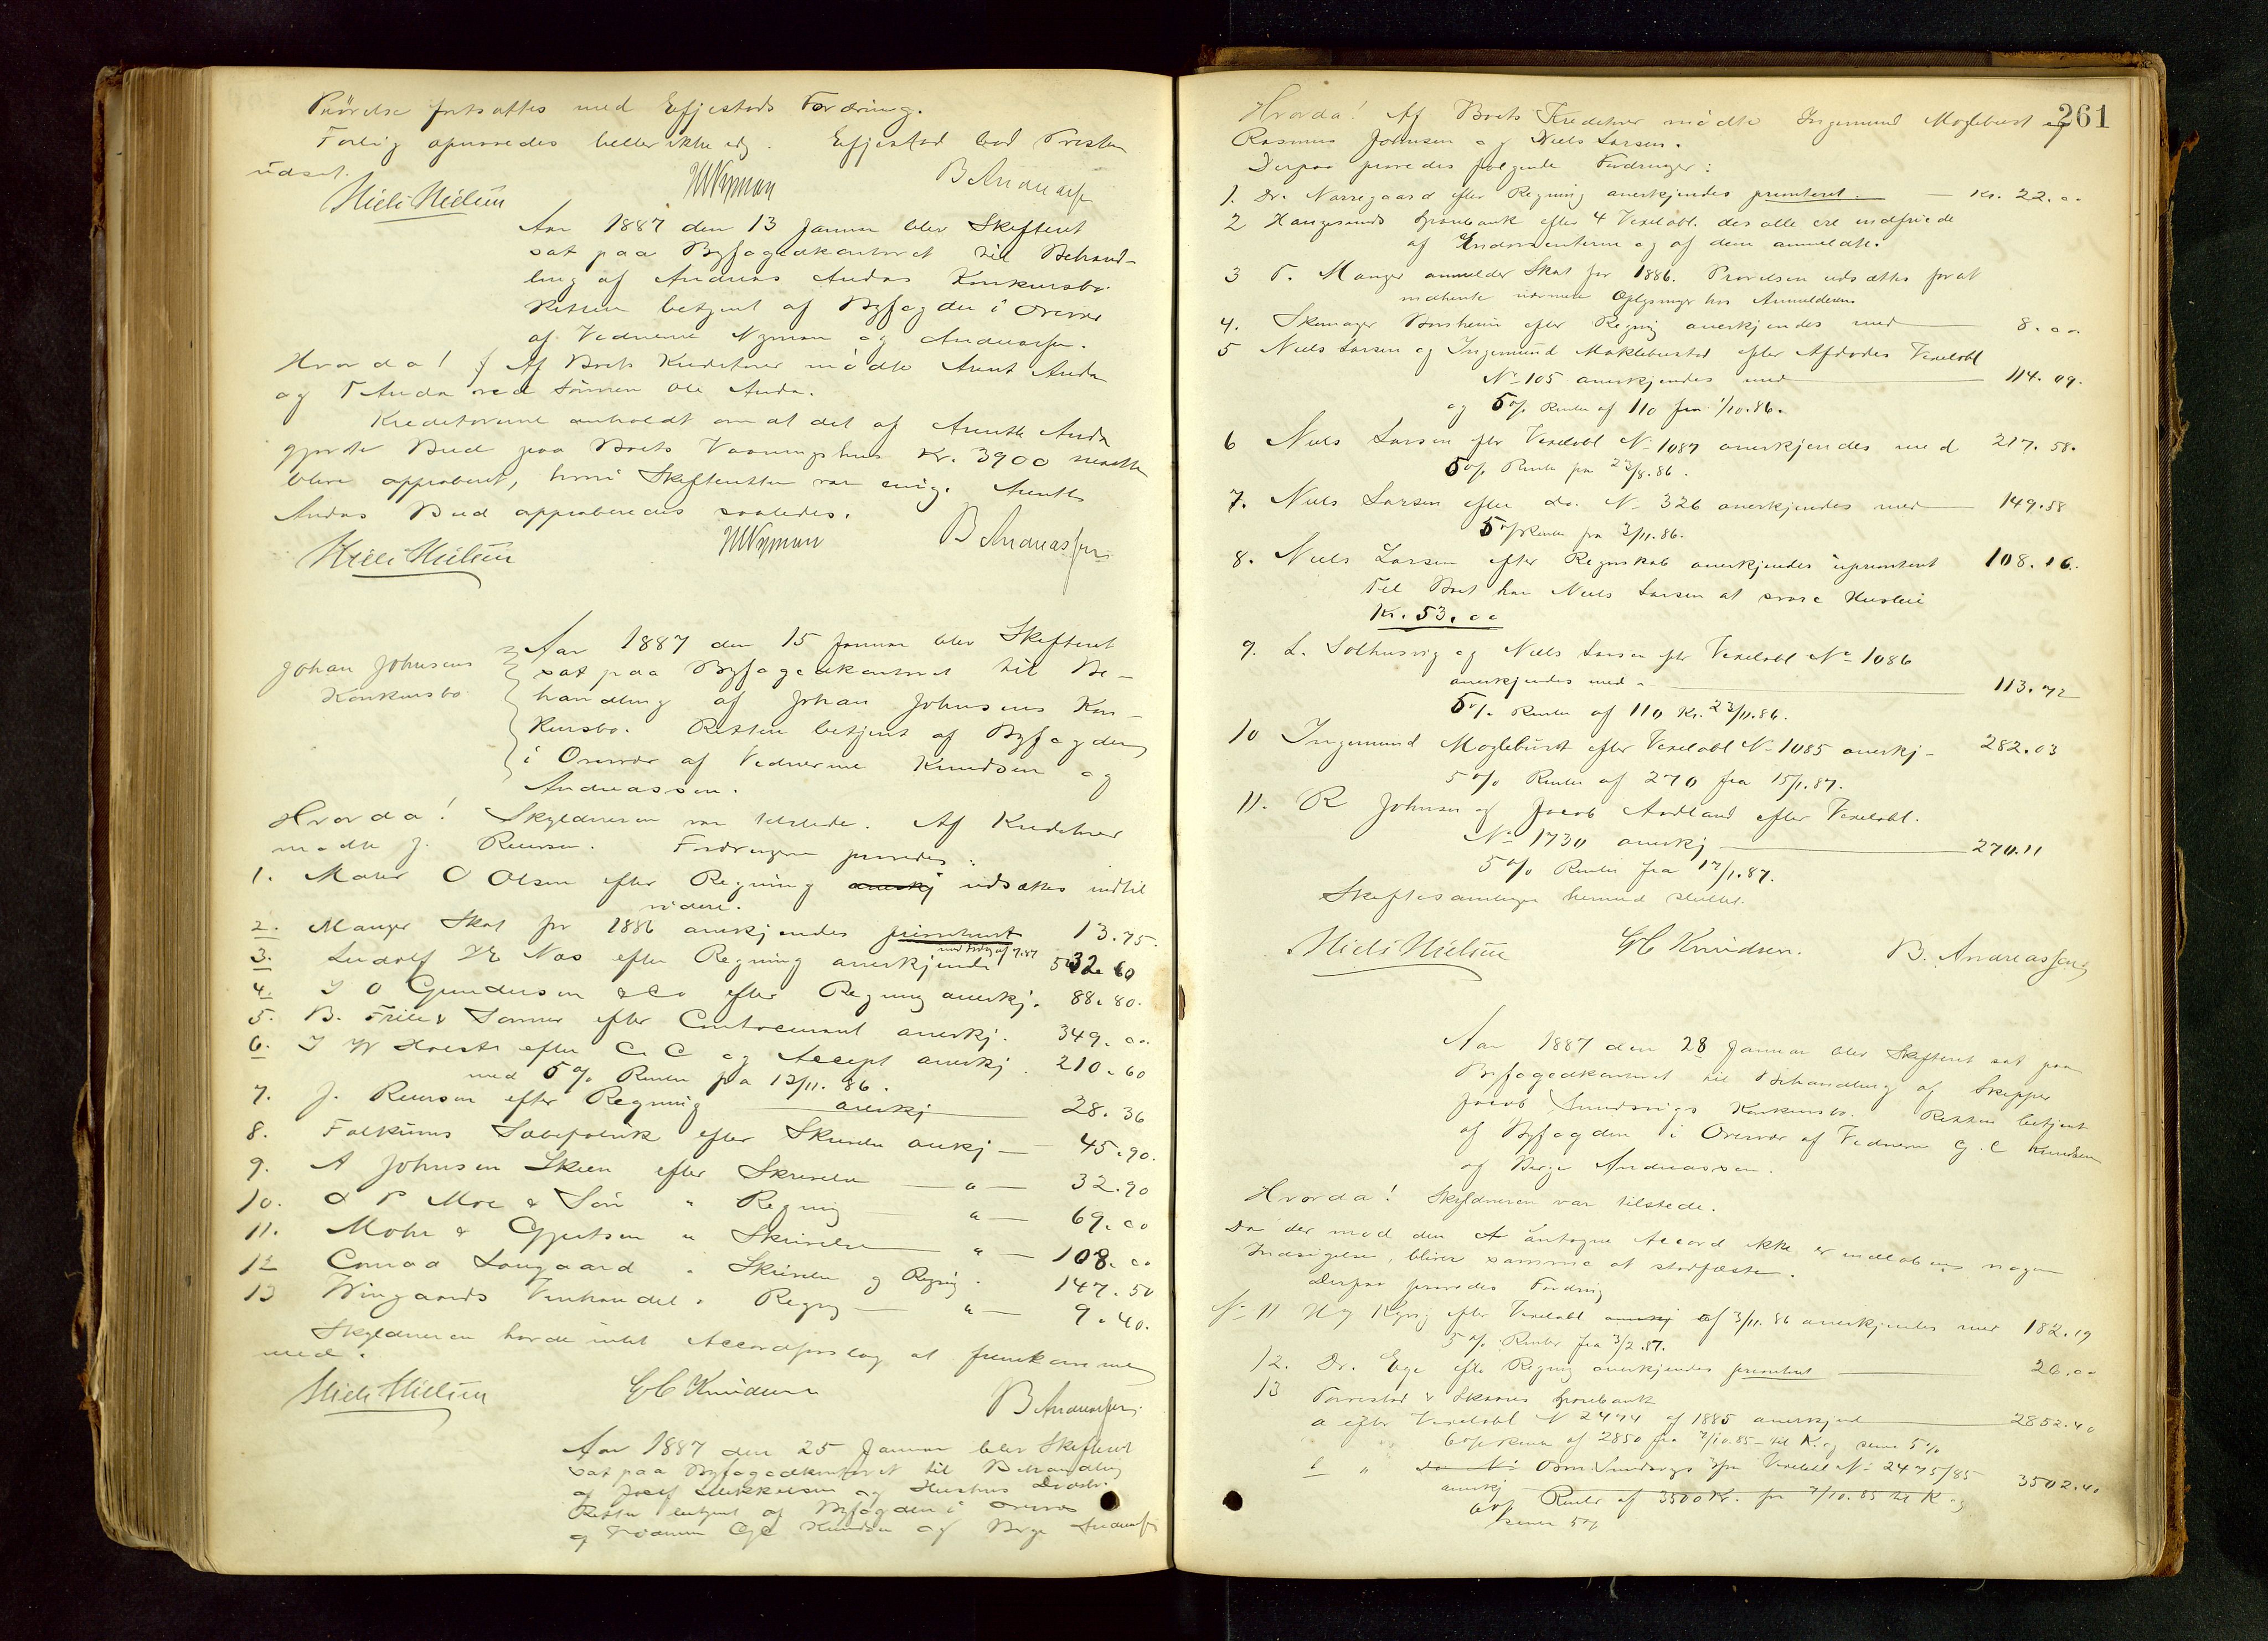 Prövelse fortsattes med Efjestads Fordring.
Forlig opnaaedes heller ikke idag. Efjestad bad Tvisten
udsat.
Niels Nielsen HNyman B Andreassen
Aar 1887 den 13 Januar blev Skifteret
sat paa Byfogedkontoret til Behand-
ling af Andreas Andas Konkursbo.
Retten betjent af Byfogden i Overvær
af Vidnerne Nyman og Andreassen.
Hvorda! Af Boets Kreditorer mödte Arent Anda
og T Anda ved Sönnen Ole Anda.
Kreditorerne anholdt om at det af Arent Anda
gjorte Bud paa Boets Vaaningshus Kr. 3900 maatte
blive approberet, hvori Skifteretten var enig. Arents
Andas Bud approberedes saaledes.
Niels Nielsen HNyman B Andreassen
Johan Johnsens
Konkursbo
Aar 1887 den 15 Januar blev Skifteret
sat paa Byfogedkontoret til Be-
handling af Johan Johnsens Kon-
kursbo. Retten betjent af Byfogden
i Overvær af Vidnerne Knudsen og
Andreassen.
Hvorda! Skyldneren var tilstede. Af Kreditorer
mödte J. Reuersen. Fordringene prövedes:
1. Maler O Olsen efter Regning anerkj udsættes indtil
videre.
2. Manger Skat for 1886 anerkjendes prioriteret 13.75.
3. Ludolf Næs efter Regning anerkjendt 32.60
4. I O Gundersen & Co efter Regning anerkj. 88.80.
5. B. Friele & Sönner efter Contocurant anerkj. 349.00
6. I W Holst efter C. C og Accept anerkj. 210.60
med 5 % Renter fra 12/11. 86.
7. J. Reuersen efter Regning anerkj 28.36
8. Falkums Sæbefabrik efter Skrivelse ankj — 45.90.
9. A Johnsen Skien efter Skrivelse — " — 32.90
10. O P Moe & Sön " Regning " — 69.00
11. Mohr & Gjertsen " Skrivelse " — 108.00
12 Conrad Langaard " Skrivelse og Regning. 147.50
13 Wingaards Vinhandel " Regng — " — 9.40.
Skyldneren havde intet Accordforslag at fremkomme
med.
Niels Nielsen GC Knudsen B Andreassen
Aar 1887 den 25 Januar blev Skifteret
sat paa Byfogedkontoret til Behandling
af Josef Mikkelsen og Hustrus Dödsbo.
Retten betjent af Byfogden i Overvær
af Vidnerne GC Knudsen og Berge Andreassen
261
Hvorda! Af Boets Kreditorer mödte Ingemund Moglebust og
Rasmus Johnsen og Niels Larsen.
Derpaa prövedes fölgende Fordringer:
1. Dr. Nörregaard efter Regning anerkjendes prioriteret — Kr. 22.00
2 Haugesunds Sparebank efter 4 Vexelobl. der alle ere indfriede
af Endossenterne og af dem anmeldte.
3 T. Manger anmelder Skat for 1886. Prövelsen udsættes for at
indhente nærmere Oplysninger hos Anmelderen
4. Skomager Borsheim efter Regning anerkjendes med 8.00
5 Niels Larsen og Ingemund Moklebustad efter Afdödes Vexelobl
No 105 anerkjendes med 114.09.
og 5 % Renter af 110 fra 1/10.86.
6 Niels Larsen efter Vexelobl No 1087 anerkjendes med 217.58.
5 % Rente fra 22/8.86.
7. Niels Larsen efter do. No 326 anerkjendes med 149.58
5 % Renter fra 2/11.86.
8. Niels Larsen efter Regnskab anerkjendes uprioriteret 108.16.
Til Boet har Niels Larsen at svare Husleie
Kr. 53.00
9. L. Solhusvig og Niels Larsen efter Vexelobl No 1086
anerkjendes med 113.72
5 % Renter af 110 Kr. 23/11.86.
10 Ingemund Moglebust efter Vexelobl No 1085 anerkj — 282.03
5 % Renter af 270 fra 15/1.87.
11. R Johnsen og Jacob Aadland efter Vexelobl.
No 1730 anerkj 270.11
5 % Renter fra 17/1.87.
Skiftesamlingen hermed sluttet.
Niels Nielsen GC Knudsen. B. Andreassen
Aar 1887 den 28 Januar blev Skifteret sat paa
Byfogedkontoret til Behandling af Skipper
Jacob Sundsvigs Konkursbo. Retten betjent
af Byfogden i Overvær af Vidnerne G. C Knudsen
og Berge Andreassen.
Hvorda! Skyldneren var tilstede.
Da der mod den antagne Accord ikke er indlöbenes nogen
Indsigelse, bliver samme at stadfæste.
Derpaa prövedes Fordring
No 11 efter Vexelobl anerkj af 3/11.86 anerkjendes med 182.19
5 % Renter fra 3/2.87.
12. Dr. Ege efter Regning anerkjendes prioriteret 26.00
13 Torvestad & Skaares Sparebank
a efter Vexelobl No 2474 af 1885 anerkjend 2852.40
6 % Renter af 2850 fra 7/10.85 — til K. og senere 5 %
b " do No Sundsvigs Vexelobl No 2475/85
anerkj 3502.40
6 % Renter af 3500 Kr. fra 7/10.85 til K. og
senere 5 %